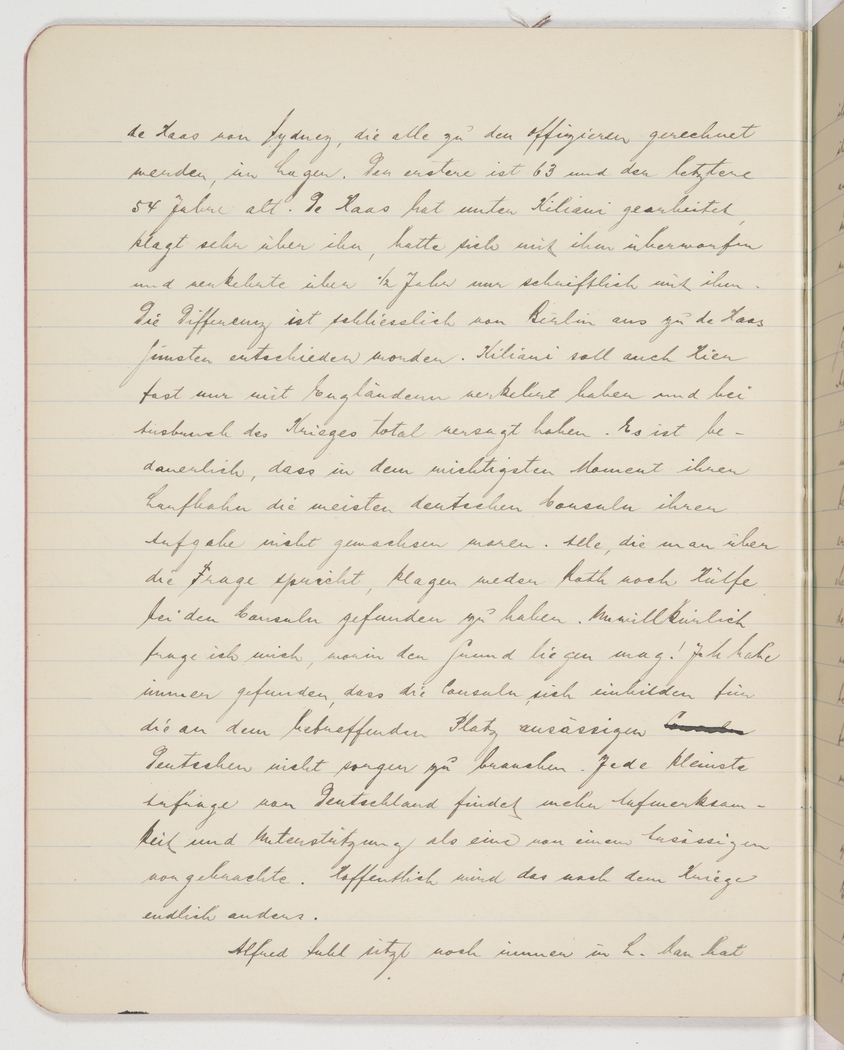 de Haas von Sydney, die alle zu den Offizieren gerechnet
werden, im Lager. Der erstere ist 63 und der letztere
54 Jahre alt. De Haas hat unter Kiliani gearbeitet,
klagt sehr über ihn, hatte sich mit ihm überworfen
und verkehrte über 1/2 Jahr nur schriftlich mit ihm.
Die Differenz ist schliesslich von Berlin aus zu de Haas
Gunsten entschieden worden. Kiliani soll auch hier
fast nur mit Engländern verkehrt haben und bei
Ausbruch des Krieges total versagt haben. Es ist be-
dauerlich, dass in dem wichtigsten Moment ihrer
Laufbahn die meisten deutschen Consuln ihrer
Aufgabe nicht gewachsen waren. Alle, die man über
die Frage spricht, klagen weder Rath noch Hülfe
bei den Consuln gefunden zu haben. Unwillkürlich
frage ich mich, worin der Grund liegen mag! Ich habe
immer gefunden, dass die Consuln sich einbilden für
die an dem betreffenden Platz ansässigen
Deutschen nicht sorgen zu brauchen. Jede kleinste
Anfrage von Deutschland findet mehr Aufmerksam-
keit und Unterstützung als eine von einem Ansässigen
vorgebrachte. Hoffentlich wird das nach dem Kriege
endlich anders.
Alfred sitzt noch immer in L. Man hat